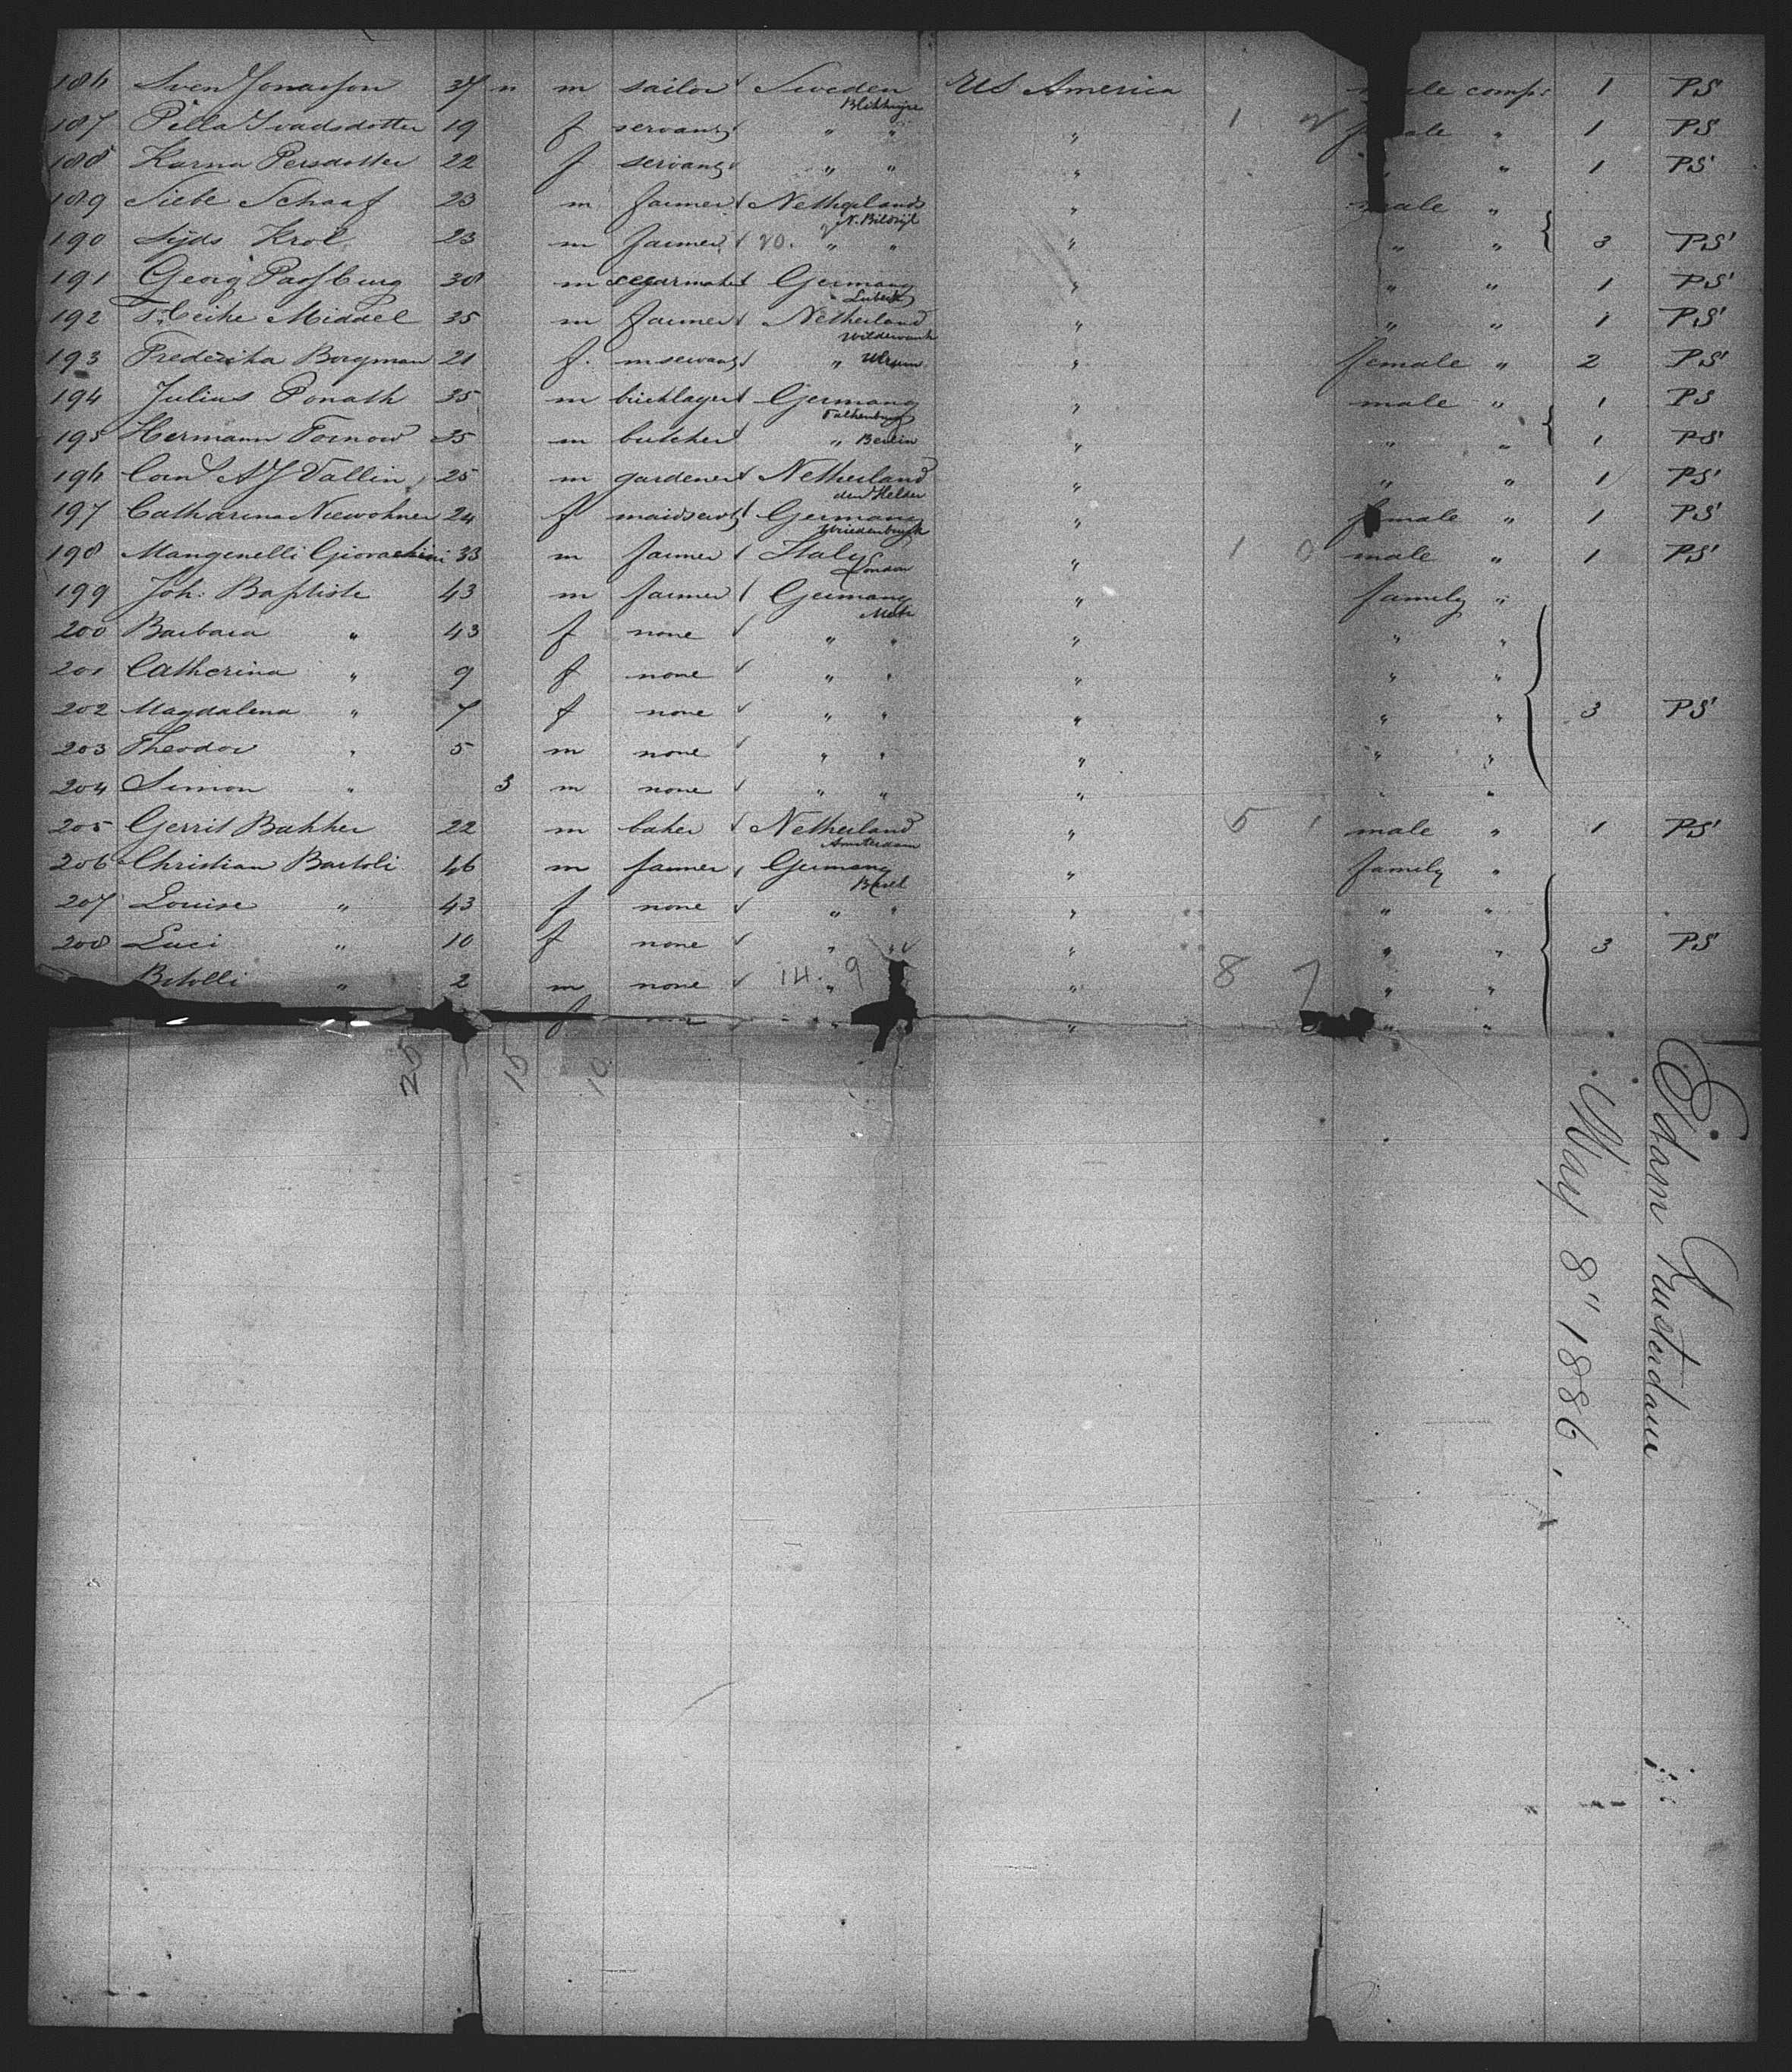 186 Sven Jonasson 37 n m sailor Sweden US America male comp: 1 PS
Blekhinge
187 Pella Svadsdotter 19 f servant " " " 1 female " 1 PS
188 Karna Persdotter 22 f servant " " " " " 1 PS
189 Siebe Schaaf 23 m farmer Netherland " male "
N. Bildzijl
190 Sijds Krol 23 m farmer 20. " " " " " 3 PS
191 Georg 30 m segarmaker Germany " " " 1 PS
Lubeck
192 Middel 35 m farmer Netherland " " " 1 PS
Wildervank
193 Frederika Borgman 21 f. m servant " Ulrum " female " 2 PS
194 Julius Ponath 35 m bricklayer Germany " male " 1 PS
Falkenburg
195 Hermann Tornow 35 m butcher " Berlin " " " 1 PS
196 Corn A J Vallin 25 m gardener Netherland " " " 1 PS
den Helder
197 Catharina Niewohner 24 f maidservt Germany " female " 1 PS
198 Mangenelli 33 m farmer Italy " 1 0 male " 1 PS
London
199 Joh: Baptiste 43 m farmer Germany " family "
Metz
200 Barbara " 43 f none " " " " "
201 Catherina " 9 f none " " " " "
202 Magdalena " 7 f none " " " " " 3 PS
203 Theodor " 5 m none " " " " "
204 Simon " 3 m none " " " " "
205 Gerrit Bakker 22 m baker Netherland " 5 1 male " 1 PS
Amsterdam
206 Christian Bartoli 46 m farmer Germany " family "
Basel
207 Louise " 43 f none " " " " "
208 Luci " 10 f none " " " " " 3 PS
Bitolli " 2 m none 14. " 9 " 8 7 " "
f " " " "
20 19 10
Edam Amsterdam
May 8" 1886